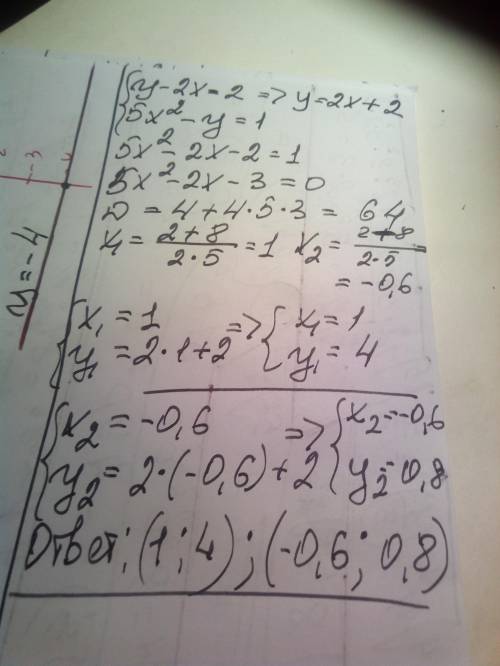 {y-2x=2 => y=2x+2
{5x²-y=1
5x²-2x-2=1
5x²-2x-3=0
D = 4+4·5·3 = 64
x₁ = (2+8)/(2·5) = 1 x₂ = (2-8)/(2·5) =
= -0,6.
{x₁ = 1 => {x₁ = 1
{y₁ = 2·1+2 {y₁ = 4
{x₂ = -0,6 => {x₂ = -0,6
{y₂ = 2·(-0,6)+2 {y₂ = 0,8
Ответ: (1; 4); (-0,6; 0,8)
y = -4
-3